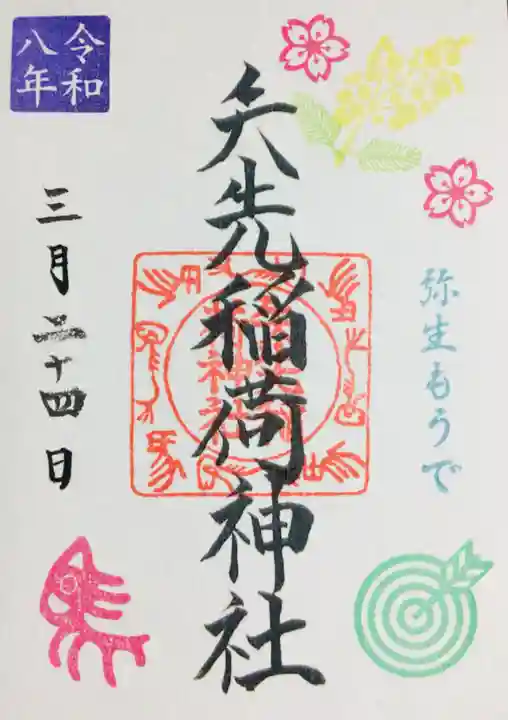 弥生もうで
矢先稲荷神社
令和
八年
三月二十四日